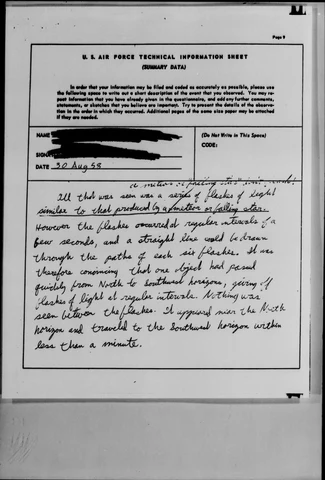 Page 9
U. S. AIR FORCE TECHNICAL INFORMATION SHEET
(SUMMARY DATA)
In order that your information may be filed and coded as accurately as possible, please use
the following space to write out a short description of the event that you observed. You may re-
peat information that you have already given in the questionnaire, and add any further comments,
statements, or sketches that you believe are important. Try to present the details of the observa-
tion in the order in which they occurred. Additional pages of the same size paper may be attached
if they are needed.
NAME
(Do Not Write in This Space)
CODE:
SIGNA
DATE 30 Aug 58
a meteor or falling star
All that was seen was a series of flashes of light
similar to that produced by a meteor or falling star.
However the flashes occurred at regular intervals of a
few seconds, and a straight line could be drawn
through the paths of each six flashes. It was
therefore convincing that one object had passed
quickly from North to Southwest horizons, giving off
flashes of light at regular intervals. Nothing was
seen between the flashes. It appeared near the North
horizon and traveled to the Southwest horizon within
less than a minute.